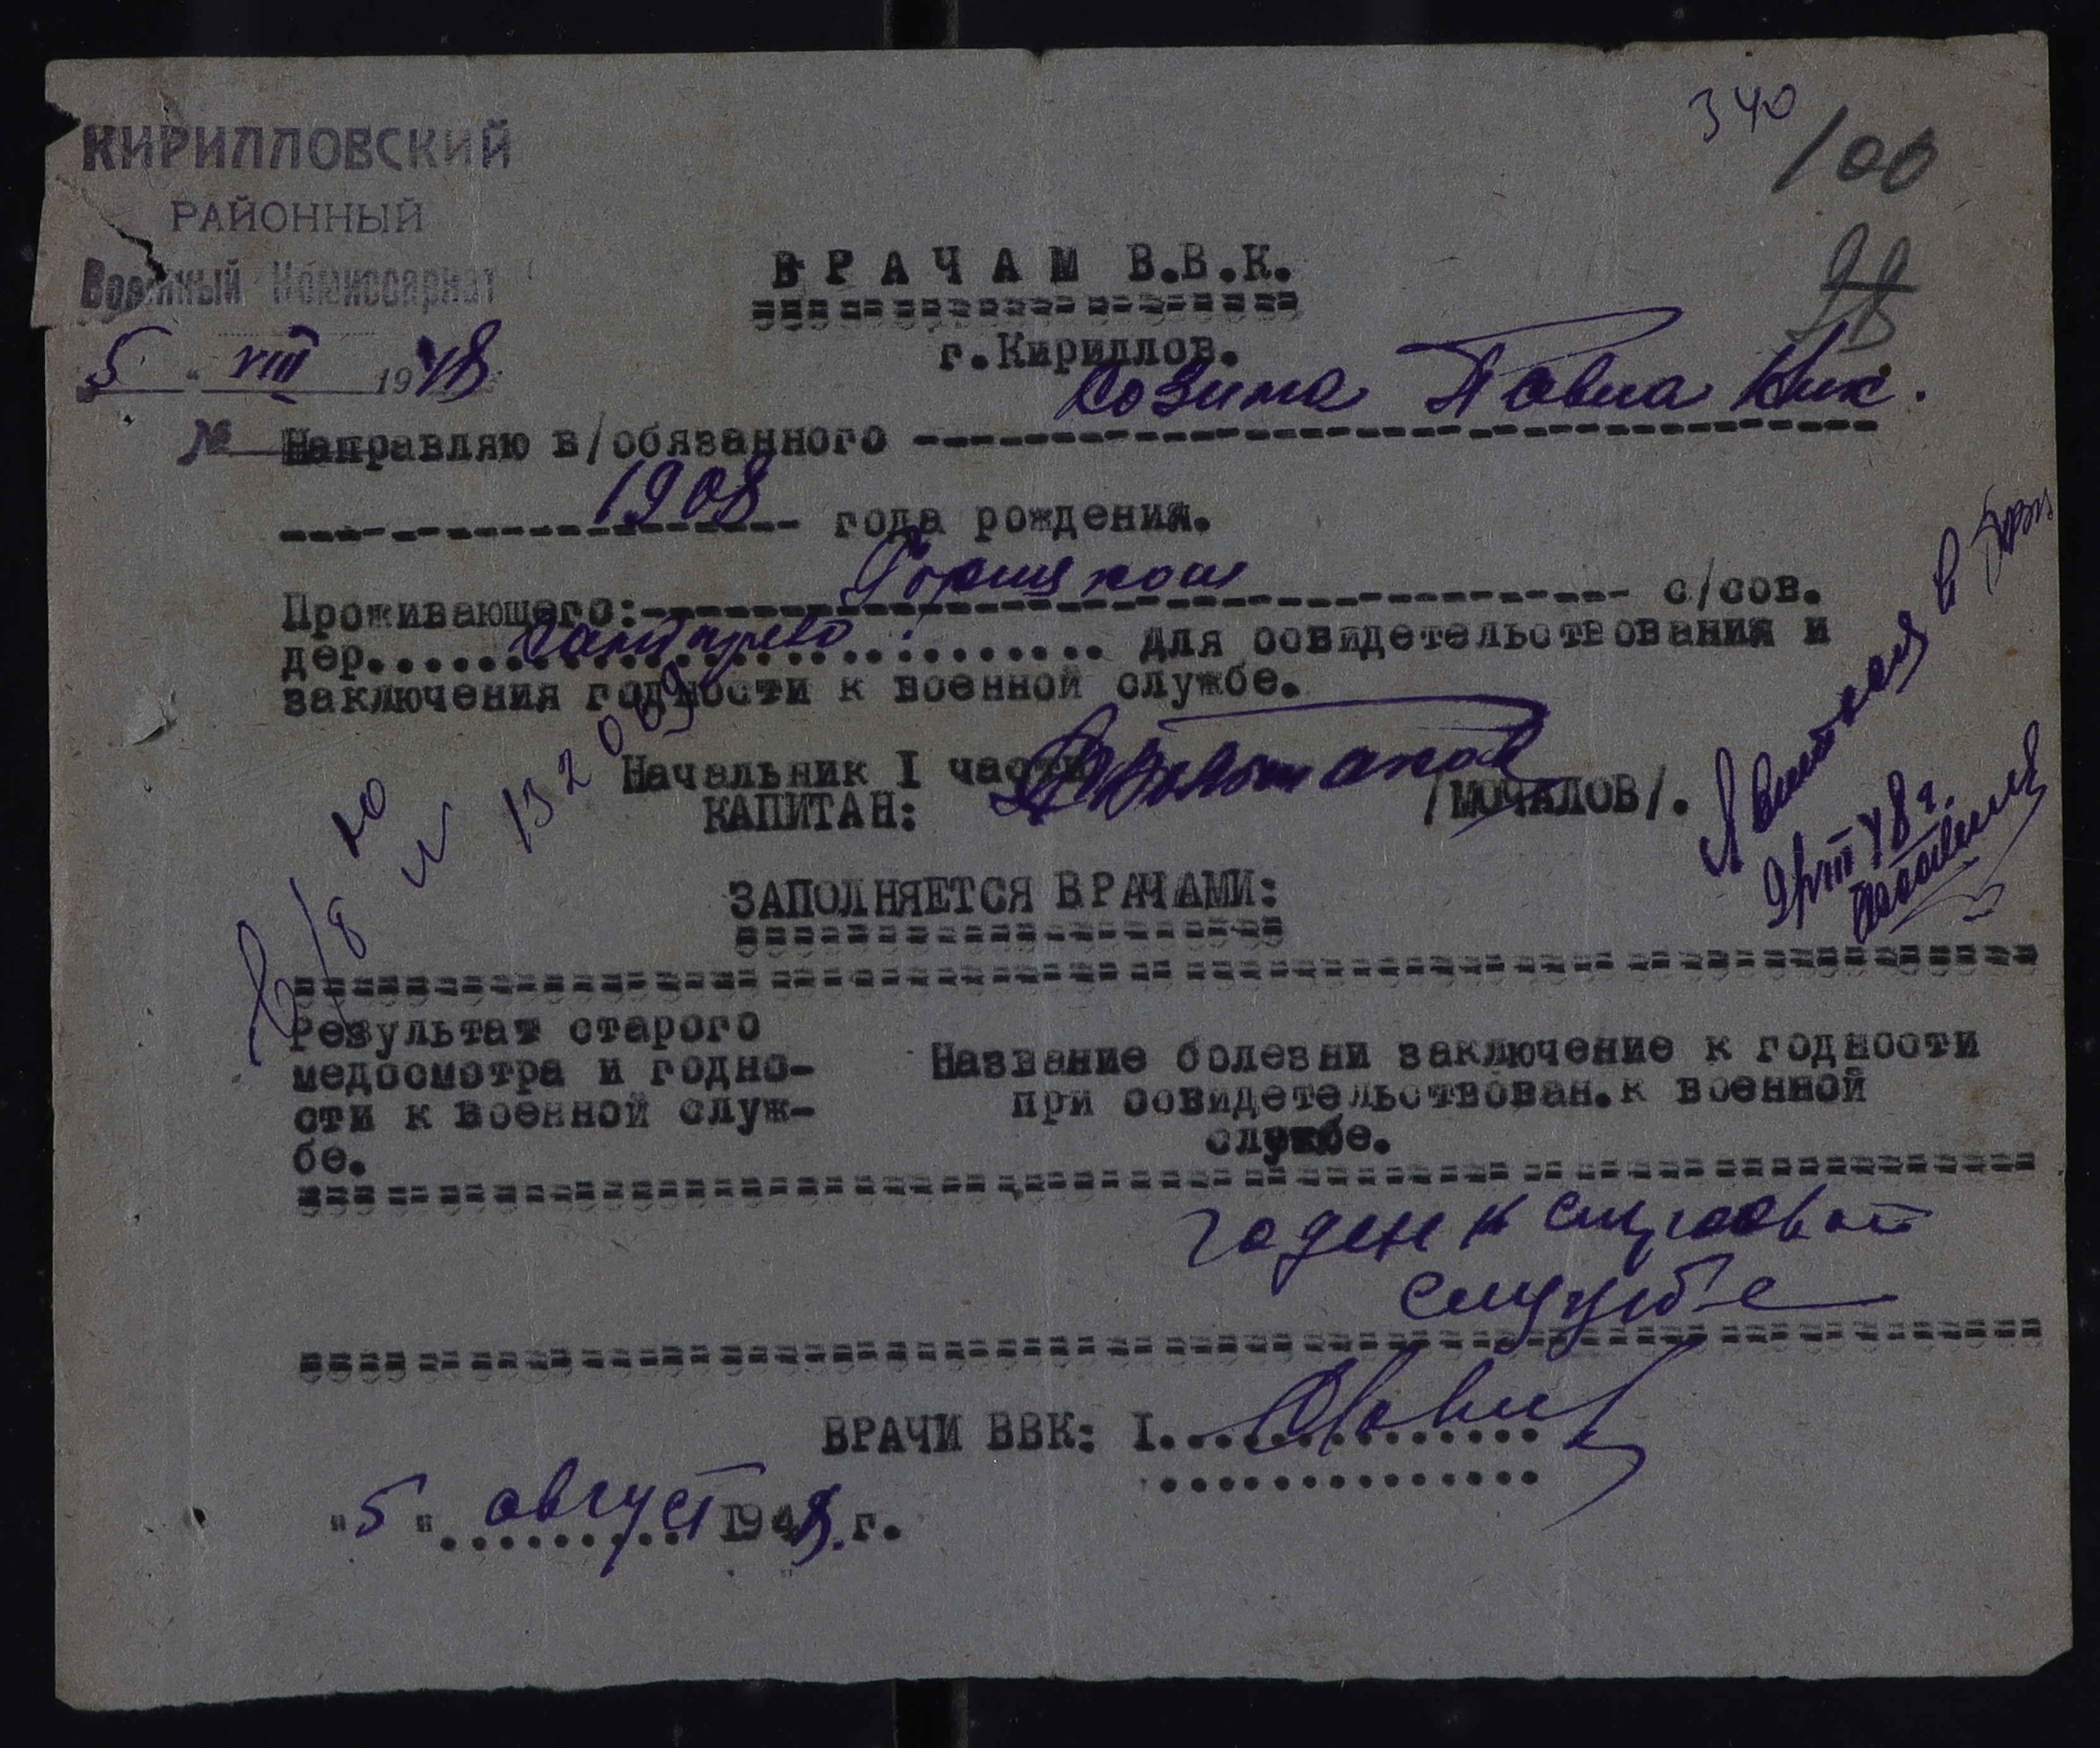 340
100
98
КИРИЛЛОВСКИЙ
РАЙОННЫЙ
Военный Комиссариат
5 " VIII 1948
№
ВРАЧАМ В.В.К.
г.Кириллов.
Направляю в/обязанного Козина Павла Ник.
1908 года рождения.
Проживающего: с/сов.
дер. для освидетельствования и
заключения годности к военной службе.
Начальник I части
КАПИТАН: /МОЧАЛОВ/.
ЗАПОЛНЯЕТСЯ ВРАЧАМИ:
Результат старого
медосмотра и годно-
сти к военной служ-
бе.
Название болезни заключение к годности
при освидетельствован. к военной
службе.
годен к строевой
службе
ВРАЧИ ВВК: I.
"5" август 1948. г.